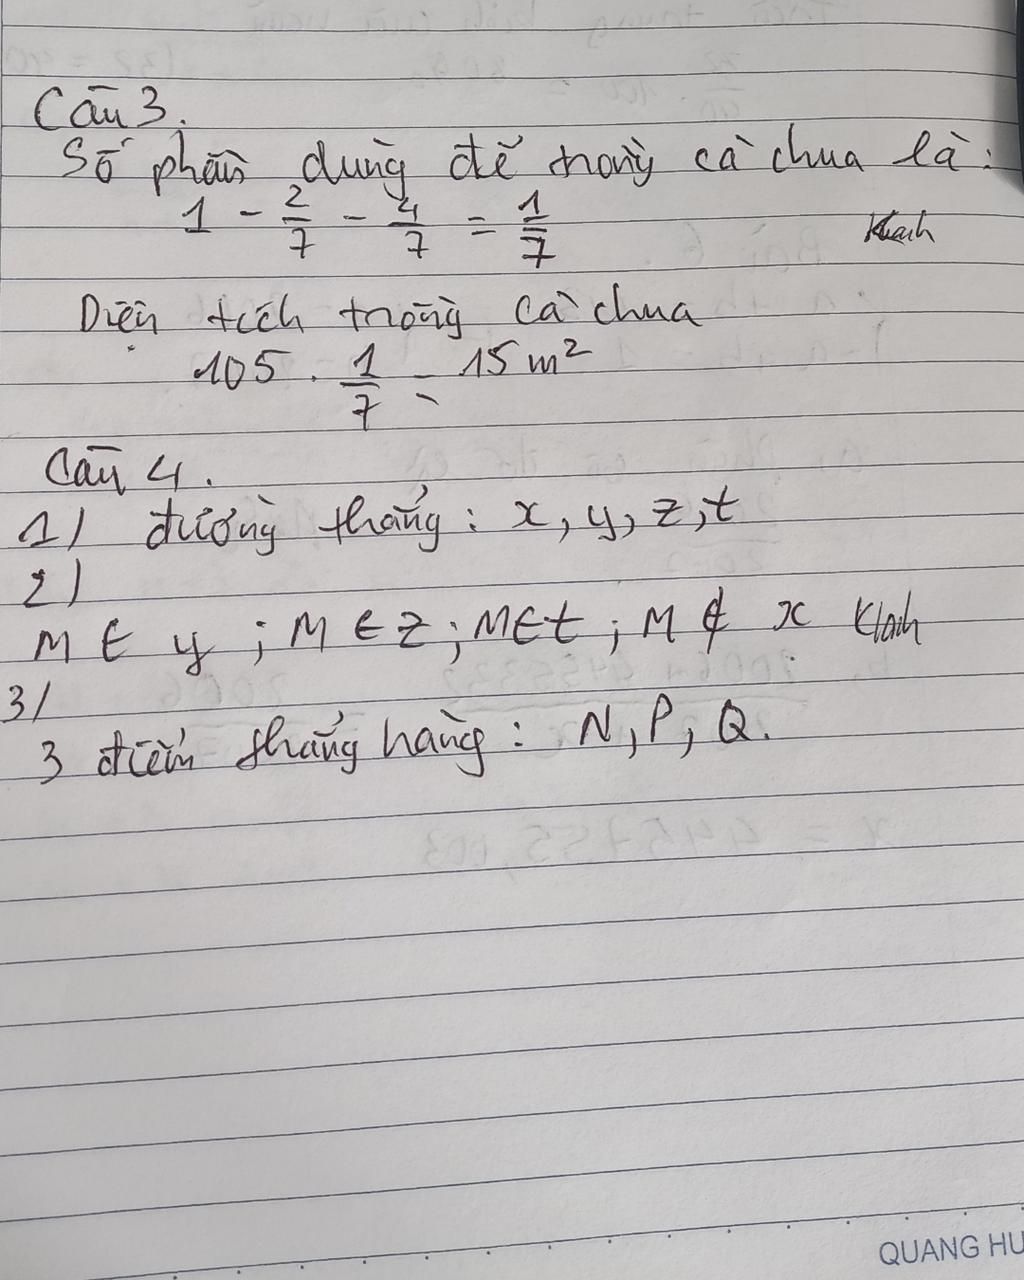 Câu 3.
Số phần dùng để trồng cà chua là:
1 - 2/7 - 4/7 = 1/7
Diện tích trồng cà chua
105 . 1/7 = 15 m²
Câu 4.
1) đường thẳng : x, y, z, t
2)
M ∈ y ; M ∈ z ; M ∈ t ; M ∉ x
3/
3 điểm thẳng hàng : N, P, Q.
QUANG HU